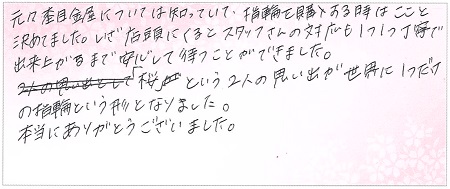 元々杢目金屋については知っていて、指輪を購入する時はここと
決めてました。いざ店頭にくるとスタッフさんの対応も1つ1つ丁寧で
出来上がるまで安心して待つことができました。
2人の思い出として「桜」が という2人の思い出が世界に1つだけ
の指輪という形となりました。
本当にありがとうございました。